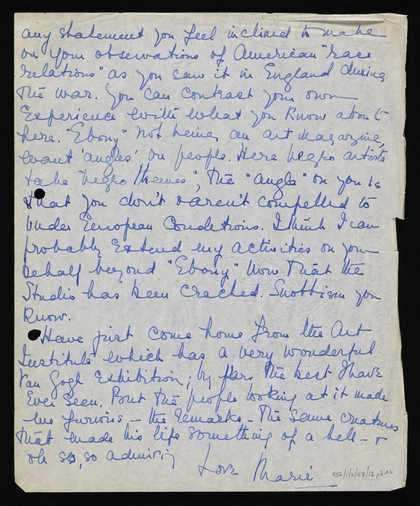 any statement you feel inclined to make
on your observations of American "race
relations" as you saw it in England during
the war. You can contrast your own
experience with what you know about
here. "Ebony" not being an art magazine
want 'angles' on people. Here negro artists
"negro themes", the "angle" on you is
that you don't & aren't compelled to
under European Conditions. I think I can
probably extend my activities on your
behalf beyond "Ebony" now that the
Studio has been cracked. Snobbism you
know.
Have just come home from the Art
Institute which has a very wonderful
Van Gogh Exhibition, by far the best I have
ever seen. But the people looking at it made
me furious - the remarks - The same creatures
that made his life something of a hell - &
oh so, so admiring
Love Marie